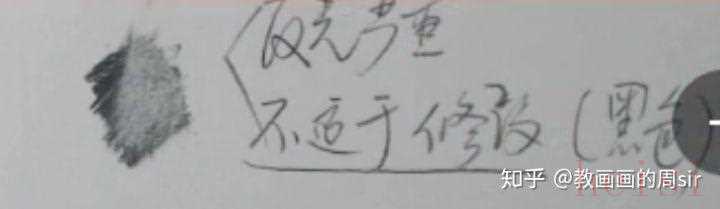 反光严重
不适于修改（黑色）
知乎 @教画画的周sir